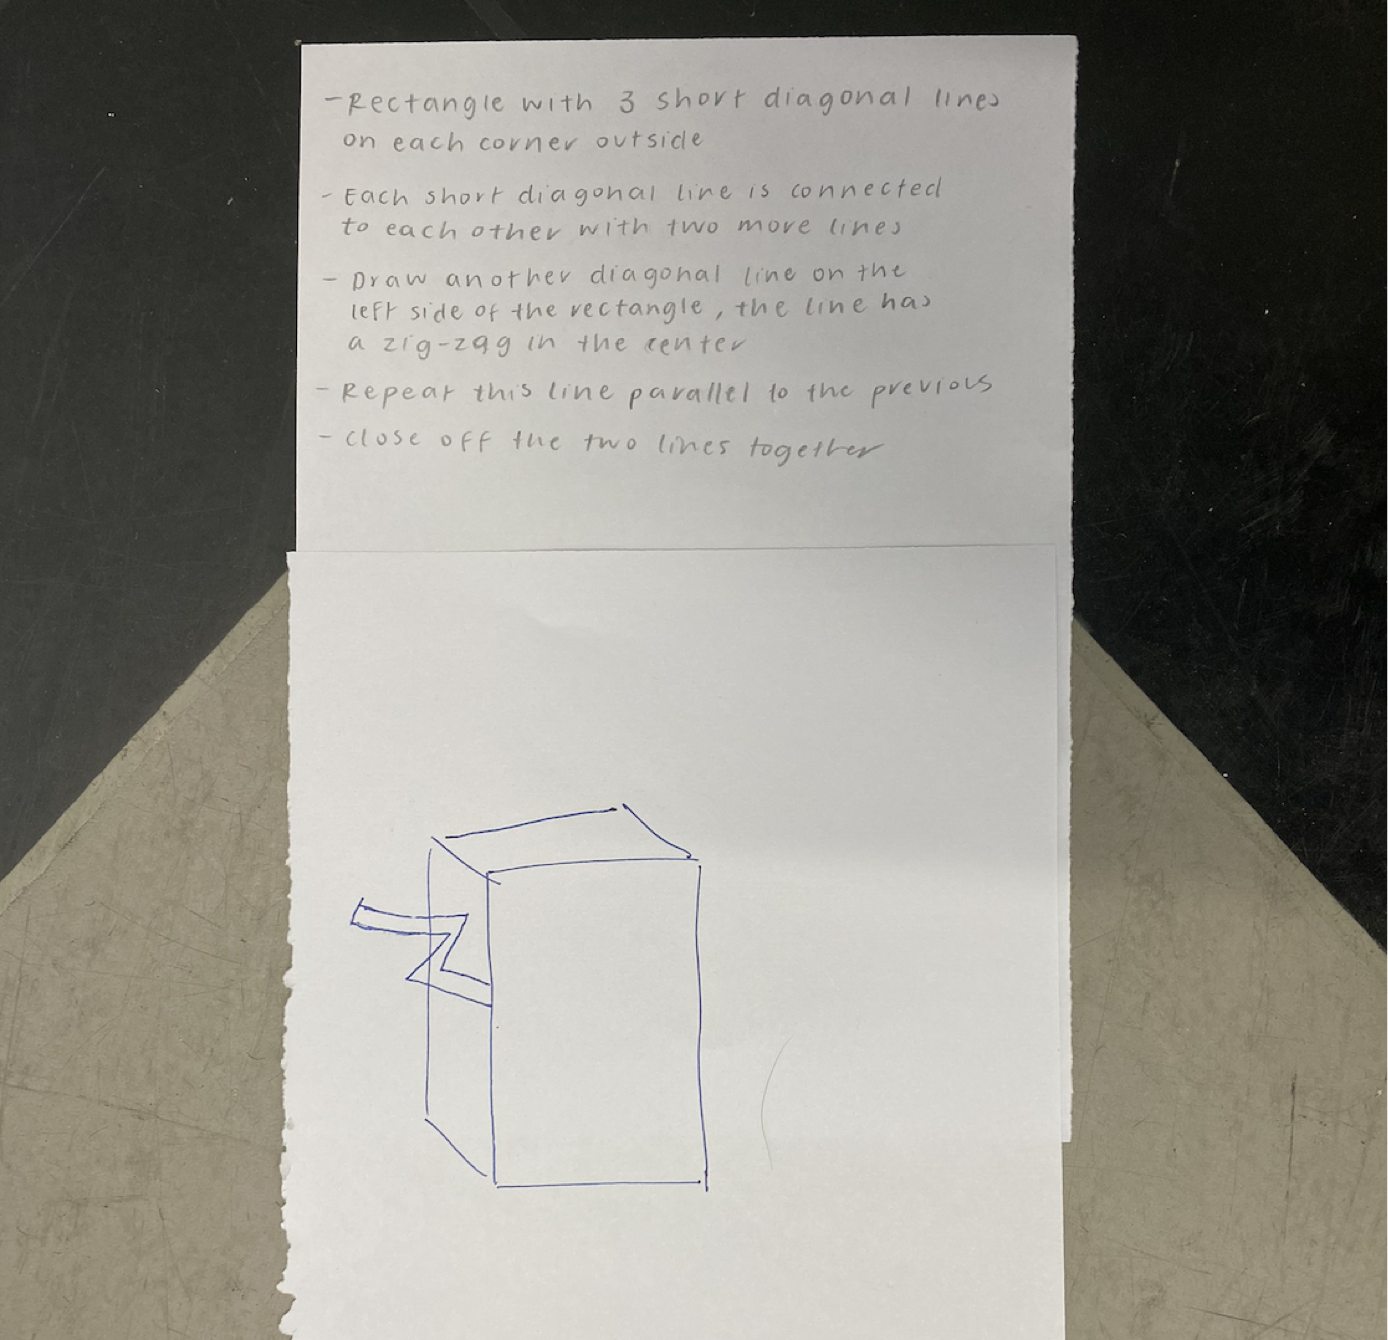 - Rectangle with 3 short diagonal lines
on each corner outside
- Each short diagonal line is connected
to each other with two more lines
- Draw another diagonal line on the
left side of the rectangle, the line has
a zig-zag in the center
- Repeat this line parallel to the previous
- close off the two lines together